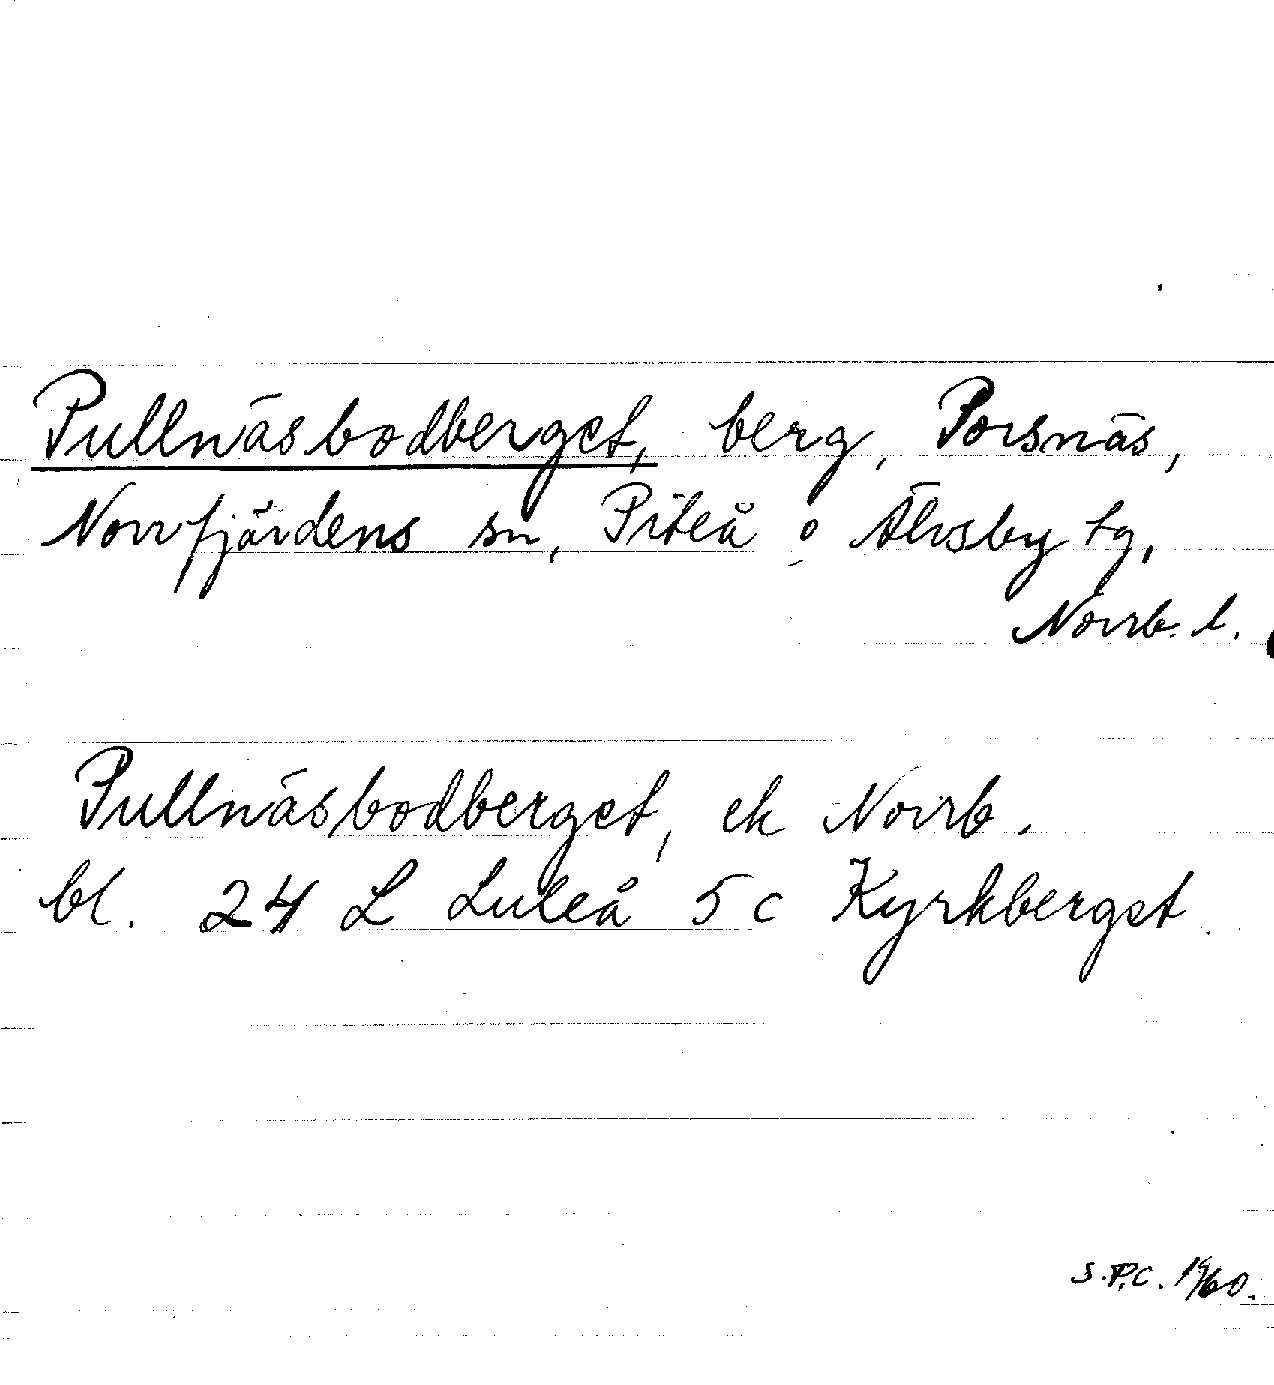 Pullnäsbodberget, berg, Porsnäs,
Norrfjärdens sn, Piteå o Älvsby tg,
Norrb. l.
Pullnäsbodberget, ek Norrb.
bl. 24 L Luleå 5 c Kyrkberget.
S.P.C. 1960.